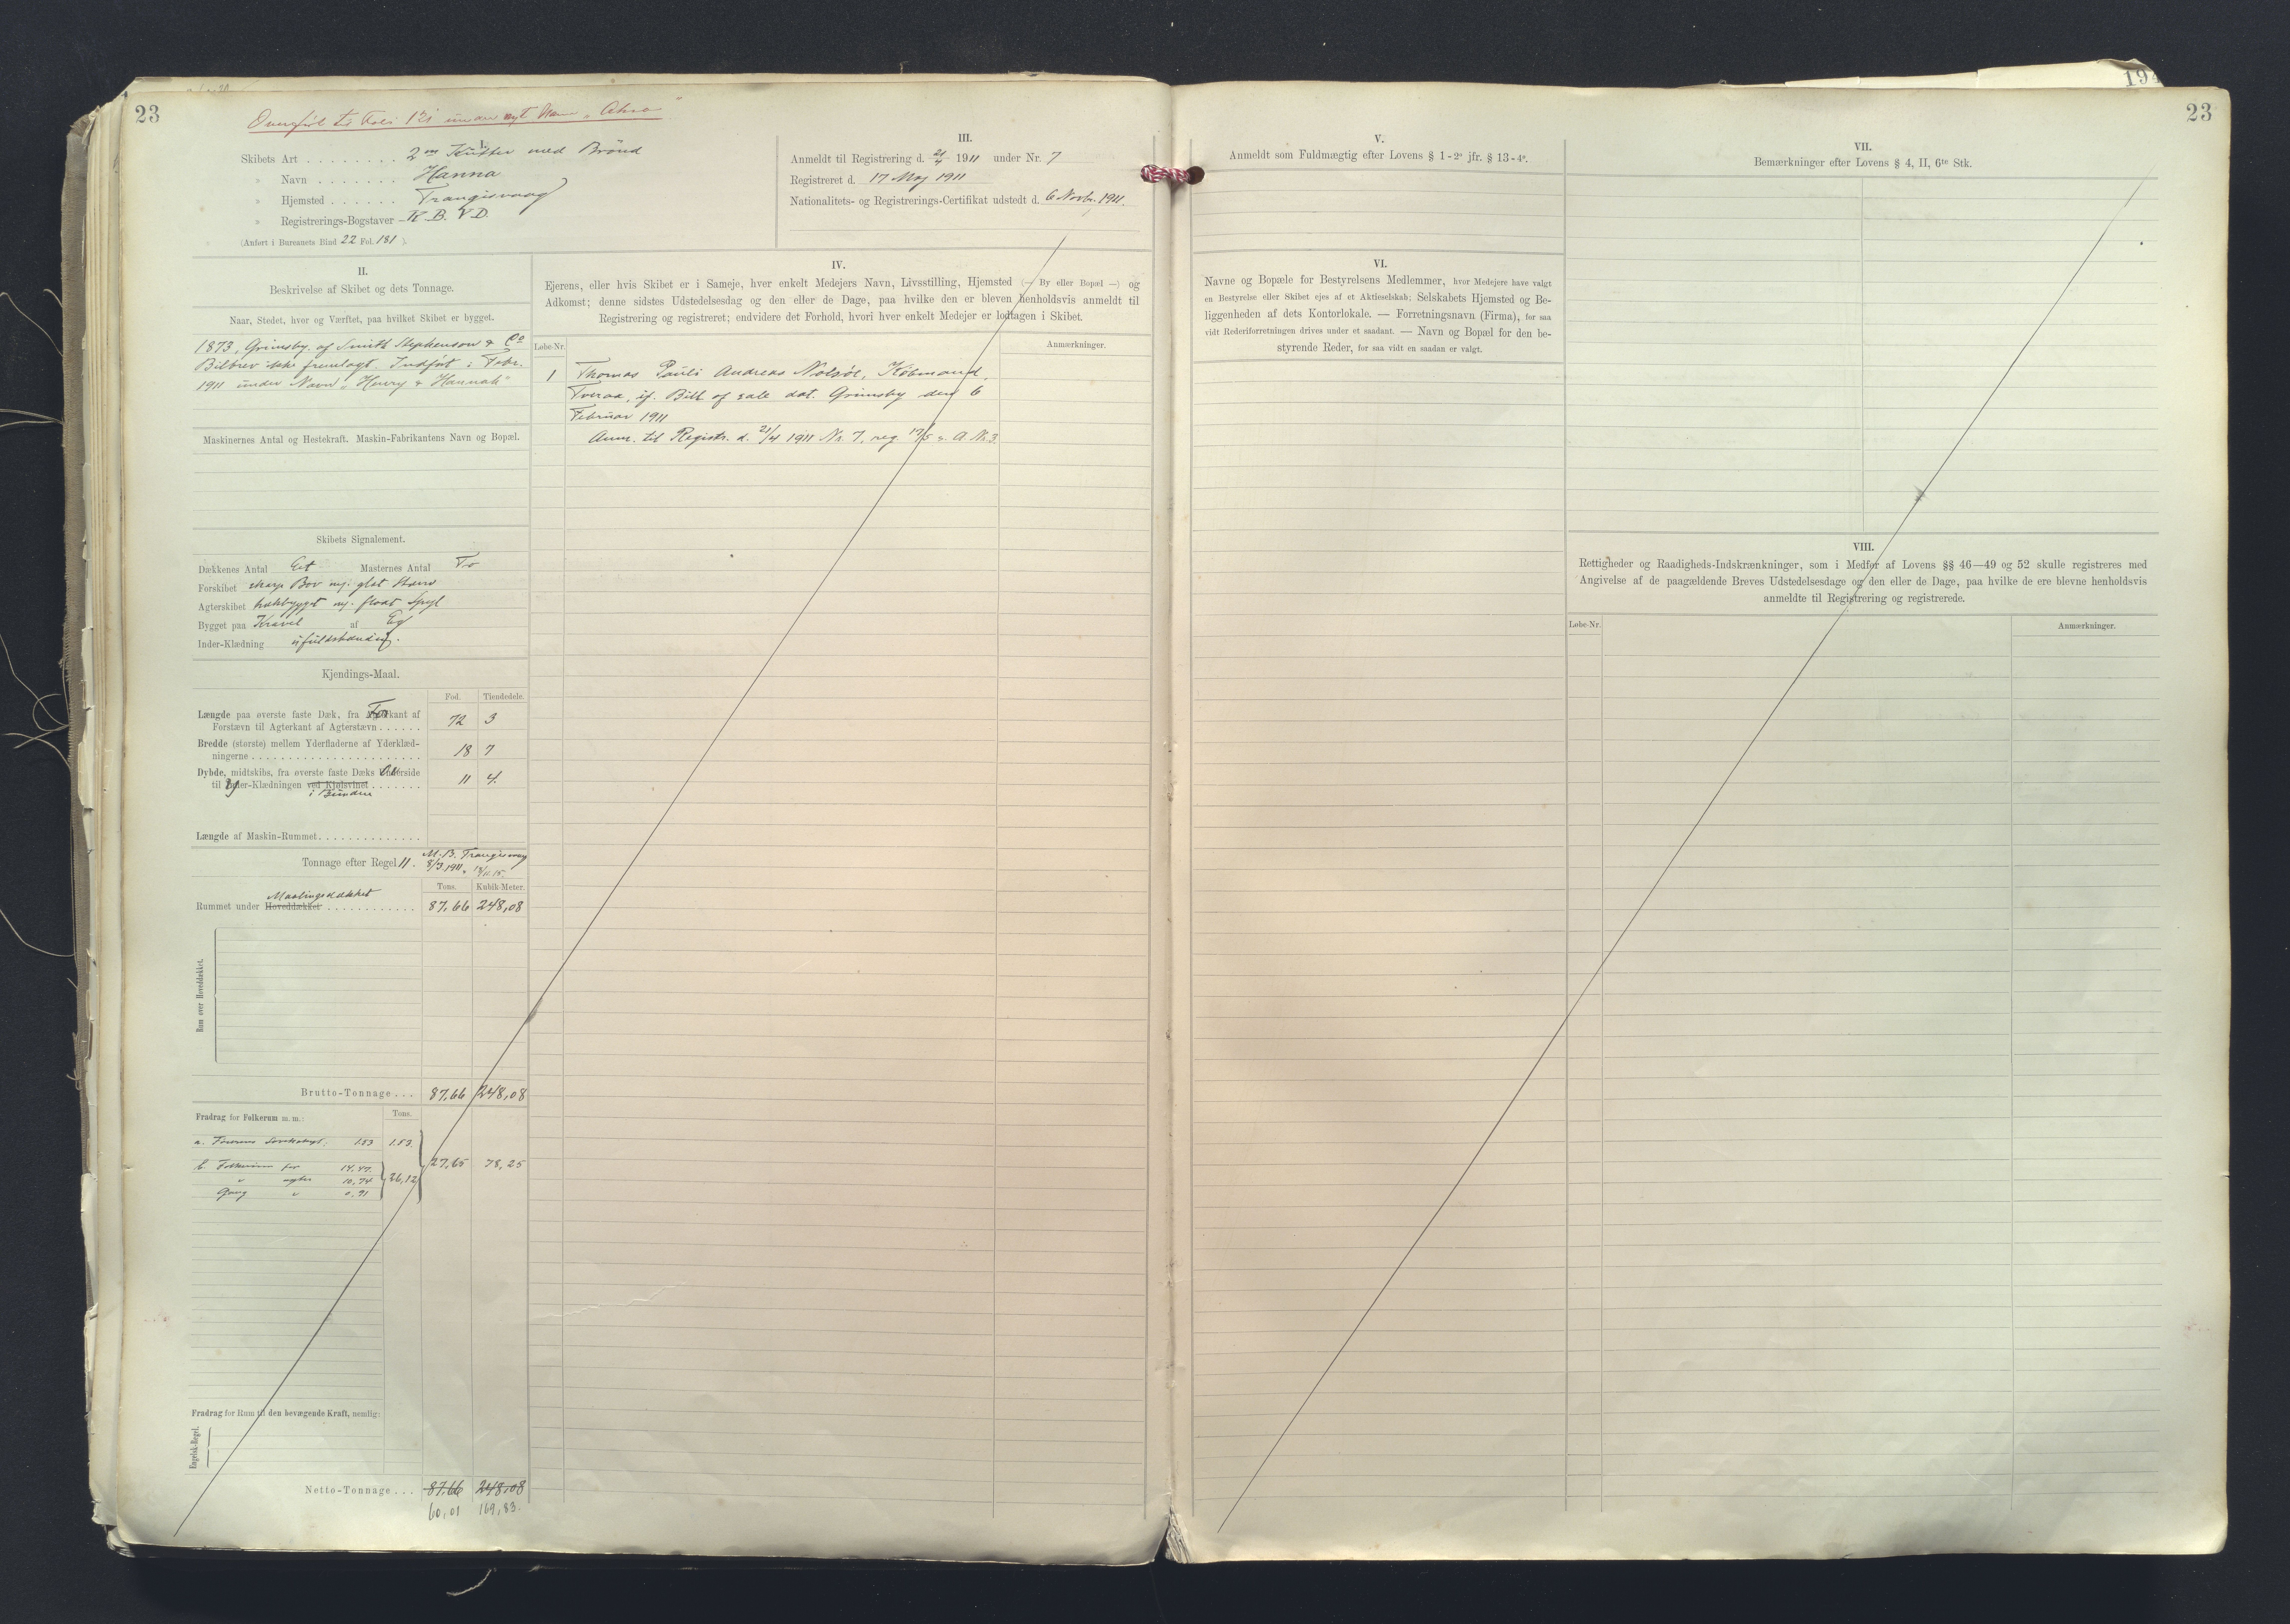 23
Overført til Folio 121 under nyt Navn „
I.
Skibets Art . . . . . . . . 2 m Kutter med Brønd
" Navn . . . . . . . Hanna
" Hjemsted . . . . . . Trangisvaag
" Registrerings-Bogstaver - N. B. V. D.
(Anført i Bureauets Bind 22 Fol. 181 ).
III.
Anmeldt til Registrering d. 21/4 1911 under Nr. 7
Registreret d. 17 Maj 1911
Nationalitets- og Registrerings-Certifikat udstedt d. 6 Novbr. 1911.
II.
Beskrivelse af Skibet og dets Tonnage.
Naar, Stedet, hvor og Værftet, paa hvilket Skibet er bygget.
1873, Grimsby af Smith Stephenson & Co
Bilbrev ikke fremlagt. Indført i Febr.
1911 under Navn „Henry & Hannah"
Maskinernes Antal og Hestekraft. Maskin-Fabrikantens Navn og Bopæl.
Skibets Signalement.
Dækkenes Antal Eet Masternes Antal To
Forskibet skarp Bov m/ glat Stævn
Agterskibet hækbygget m/ fladt Spejl
Bygget paa Kravel af Eg
Inder-Klædning ufuldstændig.
Kjendings-Maal.
Fod. Tiendedele.
Længde paa øverste faste Dæk, fra Forkant af
Forstævn til Agterkant af Agterstævn . . . . . . 72 3
Bredde (største) mellem Yderfladerne af Yderklæd-
ningerne . . . . . . . . . . . . . . . . 18 7
Dybde, midtskibs, fra øverste faste Dæks Overside
til Yder-Klædningen ved Kjølsvinet . . . . . . . 11 4.
i Bunden
Længde af Maskin-Rummet . . . . . . . . . . . . . .
Tonnage efter Regel II. M. B. Trangisvaag
8/3 1911,
Tons. Kubik-Meter.
Maalingsdækket
Rummet under Hoveddækket . . . . . . . . . . . . 87,66 248,08
Rum over Hoveddækket.
Brutto-Tonnage . . . 87,66 248,08
Fradrag for Folkerum m. m.: Tons.
a. Førerens 1.53 1.53.
27,65 78,25
b. Folkerum for 14.47
" agter 10,74 26,12
Gang " 0.91
Fradrag for Rum til den bevægende Kraft, nemlig:
Engelsk-Regel.
Netto-Tonnage . . . 87,66 248,08
60,01 169,83.
IV.
Ejerens, eller hvis Skibet er i Sameje, hver enkelt Medejers Navn, Livsstilling, Hjemsted (— By eller Bopæl —) og
Adkomst; denne sidstes Udstedelsesdag og den eller de Dage, paa hvilke den er bleven henholdsvis anmeldt til
Registrering og registreret; endvidere det Forhold, hvori hver enkelt Medejer er lodtagen i Skibet.
Løbe-Nr. Anmærkninger.
1 Thomas Pauli Andreas Nolsøe, Købmand,
Tveraa, if. Bill of sale dat. Grimsby den 6
Februar 1911
Anm. til Registr. d. 21/4 1911 Nr. 7, reg. 17/5 s. A. Nr. 3
V.
Anmeldt som Fuldmægtig efter Lovens § 1 - 2° jfr. § 13 - 4°.
VI.
Navne og Bopæle for Bestyrelsens Medlemmer, hvor Medejere have valgt
en Bestyrelse eller Skibet ejes af et Aktieselskab; Selskabets Hjemsted og Be-
liggenheden af dets Kontorlokale. — Forretningsnavn (Firma), for saa
vidt Rederiforretningen drives under et saadant. — Navn og Bopæl for den be-
styrende Reder, for saa vidt en saadan er valgt.
23
VII.
Bemærkninger efter Lovens § 4, II, 6te Stk.
VIII.
Rettigheder og Raadigheds-Indskrænkninger, som i Medfør af Lovens §§ 46—49 og 52 skulle registreres med
Angivelse af de paagældende Breves Udstedelsesdage og den eller de Dage, paa hvilke de ere blevne henholdsvis
anmeldte til Registrering og registrerede.
Løbe-Nr. Anmærkninger.